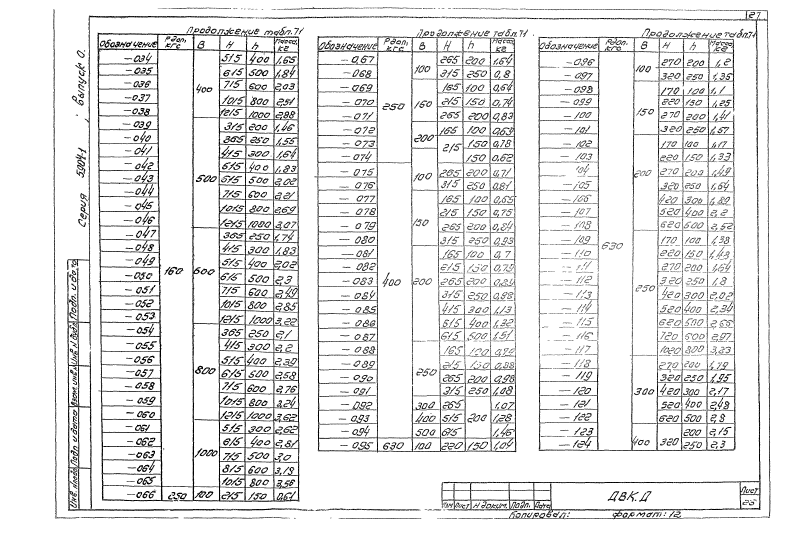 27
Серия 5.904-1, выпуск 0.
Продолжение табл. 71
Обозначение Рдоп. кгс B H h Масса, кг
-034 160 400 515 400 1,65
-035 615 500 1,84
-036 715 600 2,03
-037 1015 800 2,51
-038 1215 1000 2,88
-039 500 315 200 1,46
-040 365 250 1,55
-041 415 300 1,64
-042 515 400 1,83
-043 615 500 2,02
-044 715 600 2,21
-045 1015 800 2,69
-046 1215 1000 3,07
-047 600 365 250 1,74
-048 415 300 1,83
-049 515 400 2,02
-050 615 500 2,3
-051 715 600 2,49
-052 1015 800 2,85
-053 1215 1000 3,22
-054 800 365 250 2,1
-055 415 300 2,2
-056 515 400 2,39
-057 615 500 2,58
-058 715 600 2,76
-059 1015 800 3,24
-060 1215 1000 3,62
-061 1000 515 300 2,62
-062 615 400 2,81
-063 715 500 3,0
-064 815 600 3,19
-065 1015 800 3,56
-066 250 100 215 150 0,61
Продолжение табл. 71
Обозначение Рдоп. кгс B H h Масса, кг
-067 250 100 265 200 1,64
-068 315 250 0,8
-069 160 165 100 0,64
-070 215 150 0,74
-071 265 200 0,83
-072 200 165 100 0,69
-073 215 150 0,78
-074 150 0,62
-075 400 100 265 200 0,71
-076 315 250 0,81
-077 150 165 100 0,65
-078 215 150 0,75
-079 265 200 0,84
-080 315 250 0,93
-081 200 165 100 0,7
-082 215 150 0,79
-083 265 200 0,89
-084 315 250 0,98
-085 415 300 1,13
-086 515 400 1,32
-087 615 500 1,51
-088 250 165 100
-089 215 150
-090 265 200 0,98
-091 315 250 1,08
-092 300 265 200 1,07
-093 400 515 1,28
-094 500 615 1,46
-095 630 100 220 150 1,04
Продолжение табл. 71
Обозначение Рдоп. кгс B H h Масса, кг
-096 630 100 270 200 1,2
-097 320 250 1,35
-098 150 170 100 1,1
-099 220 150 1,25
-100 270 200 1,41
-101 320 250 1,57
-102 200 170 100 1,17
-103 220 150 1,33
-104 270 200 1,49
-105 320 250 1,64
-106 420 300 1,89
-107 520 400 2,2
-108 620 500 2,52
-109 250 170 100 1,38
-110 220 150 1,43
-111 270 200 1,64
-112 320 250 1,8
-113 420 300 2,02
-114 520 400 2,34
-115 620 500 2,65
-116 720 600 2,97
-117 1020 800 3,23
-118 300 270 200 1,79
-119 320 250 1,95
-120 420 300 2,17
-121 520 400 2,48
-122 620 500 2,8
-123 400 320 200 2,15
-124 250 2,3
Инв. № подл. Подп. и дата Взам. инв. № Инв. № дубл. Подп. и дата
ДВК.Д
Лист
Изм Лист № докум. Подп. Дата
Копировал: Формат: 12